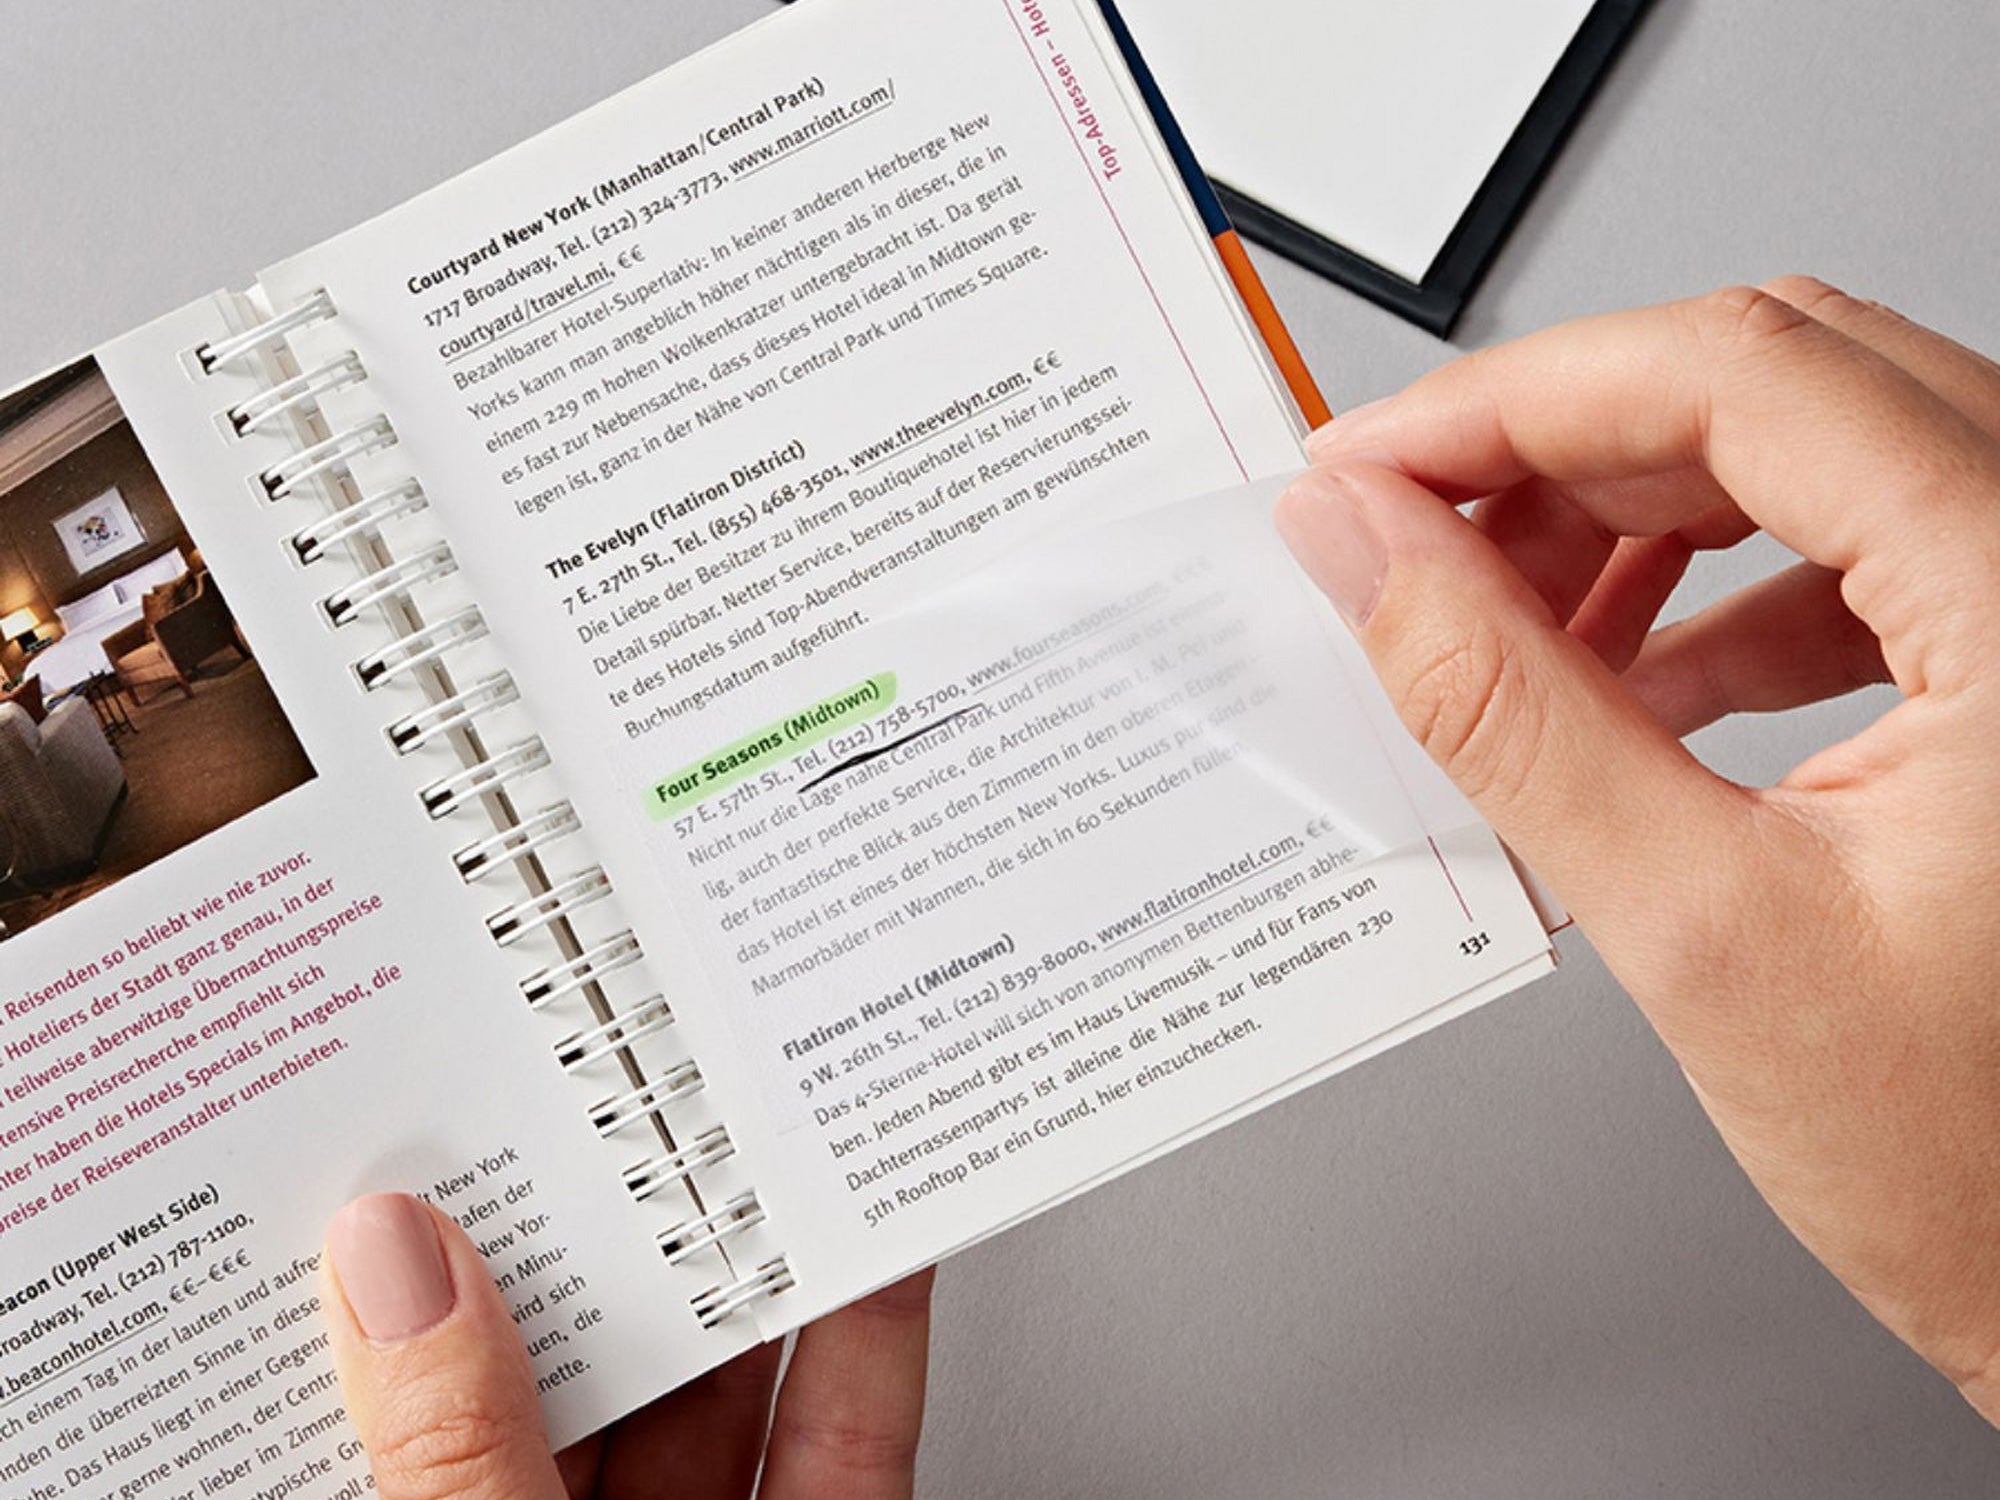 Reisenden so beliebt wie nie zuvor.
Hoteliers der Stadt ganz genau, in der
teilweise aberwitzige Übernachtungspreise
Preisrecherche empfiehlt sich
haben die Hotels Specials im Angebot, die
der Reiseveranstalter unterbieten.
(Upper West Side)
Tel. (212) 787-1100,
.beaconhotel.com, €€–€€€
einem Tag in der lauten und
die überreizten Sinne in
Das Haus liegt in einer
gerne wohnen, der
lieber im
New York
der
New Yor-
Minu-
sich
die
Top-Adressen –
Courtyard New York (Manhattan/Central Park)
1717 Broadway, Tel. (212) 324-3773, www.marriott.com/
courtyard/travel.mi, €€
Bezahlbarer Hotel-Superlativ: In keiner anderen Herberge New
Yorks kann man angeblich höher nächtigen als in dieser, die in
einem 229 m hohen Wolkenkratzer untergebracht ist. Da gerät
es fast zur Nebensache, dass dieses Hotel ideal in Midtown ge-
legen ist, ganz in der Nähe von Central Park und Times Square.
The Evelyn (Flatiron District)
7 E. 27th St., Tel. (855) 468-3501, www.theevelyn.com, €€
Die Liebe der Besitzer zu ihrem Boutiquehotel ist hier in jedem
Detail spürbar. Netter Service, bereits auf der Reservierungssei-
te des Hotels sind Top-Abendveranstaltungen am gewünschten
Buchungsdatum aufgeführt.
Four Seasons (Midtown)
57 E. 57th St., Tel. (212) 758-5700, www.fourseasons.com, €€€
Nicht nur die Lage nahe Central Park und Fifth Avenue ist
lig, auch der perfekte Service, die Architektur von I. M. Pei und
der fantastische Blick aus den Zimmern in den oberen Etagen –
das Hotel ist eines der höchsten New Yorks. Luxus pur sind die
Marmorbäder mit Wannen, die sich in 60 Sekunden füllen.
Flatiron Hotel (Midtown)
9 W. 26th St., Tel. (212) 839-8000, www.flatironhotel.com, €€
Das 4-Sterne-Hotel will sich von anonymen Bettenburgen abhe-
ben. Jeden Abend gibt es im Haus Livemusik – und für Fans von
Dachterrassenpartys ist alleine die Nähe zur legendären 230
5th Rooftop Bar ein Grund, hier einzuchecken.
131